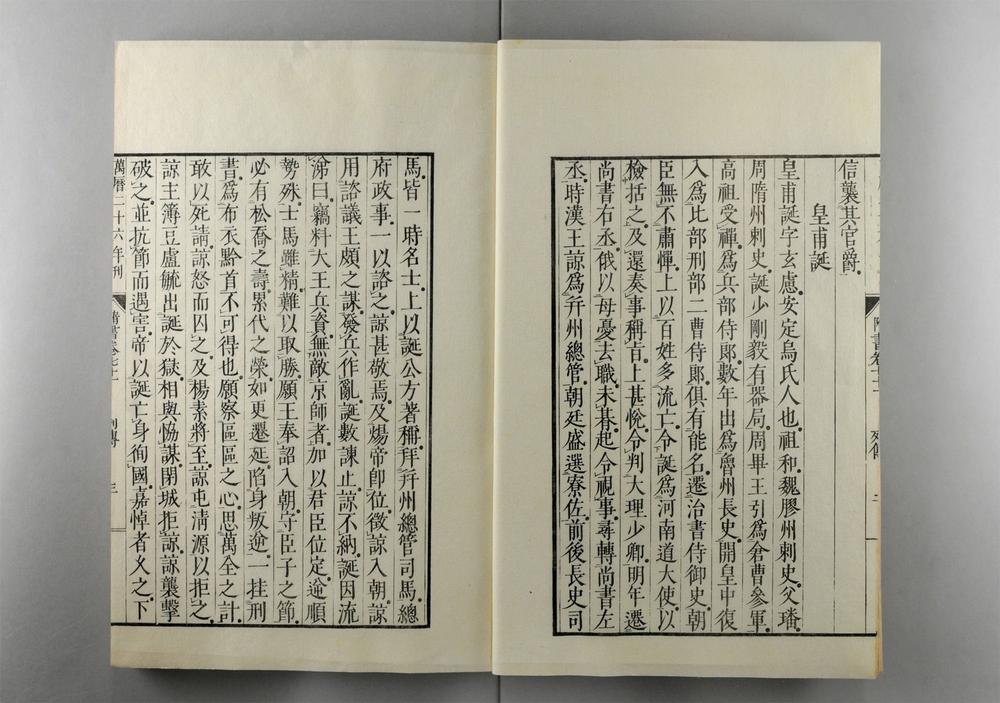 信襲其官爵
皇甫誕
皇甫誕字玄慮安定烏氏人也祖和魏膠州刺史父璠
周隋州刺史誕少剛毅有器局周畢王引爲倉曹參軍
高祖受禪爲兵部侍郎數年出爲魯州長史開皇中復
入爲比部刑部二曹侍郎俱有能名遷治書侍御史朝
臣無不肅憚上以百姓多流亡令誕爲河南道大使以
檢括之及還奏事稱旨上甚悅令判大理少卿明年遷
尚書右丞俄以母憂去職未朞起令視事尋轉尚書左
丞時漢王諒爲幷州總管朝廷盛選寮佐前後長史司
馬皆一時名士上以誕公方著稱拜幷州總管司馬總
府政事一以諮之諒甚敬焉及煬帝卽位徵諒入朝諒
用諮議王頗之謀發兵作亂誕數諫止諒不納誕因流
涕曰竊料大王兵資無敵京師者加以君臣位定逆順
勢殊士馬雖精難以取勝願王奉詔入朝守臣子之節
必有松喬之壽累代之榮如更遷延陷身叛逆一挂刑
書爲布衣黔首不可得也願察區區之心思萬全之計
敢以死請諒怒而囚之及楊素將至諒屯清源以拒之
諒主簿豆盧毓出誕於獄相與協謀閉城拒諒諒襲擊
破之並抗節而遇害帝以誕亡身徇國嘉悼者久之下
萬曆二十六年刊
隋書卷七十一
列傳
三